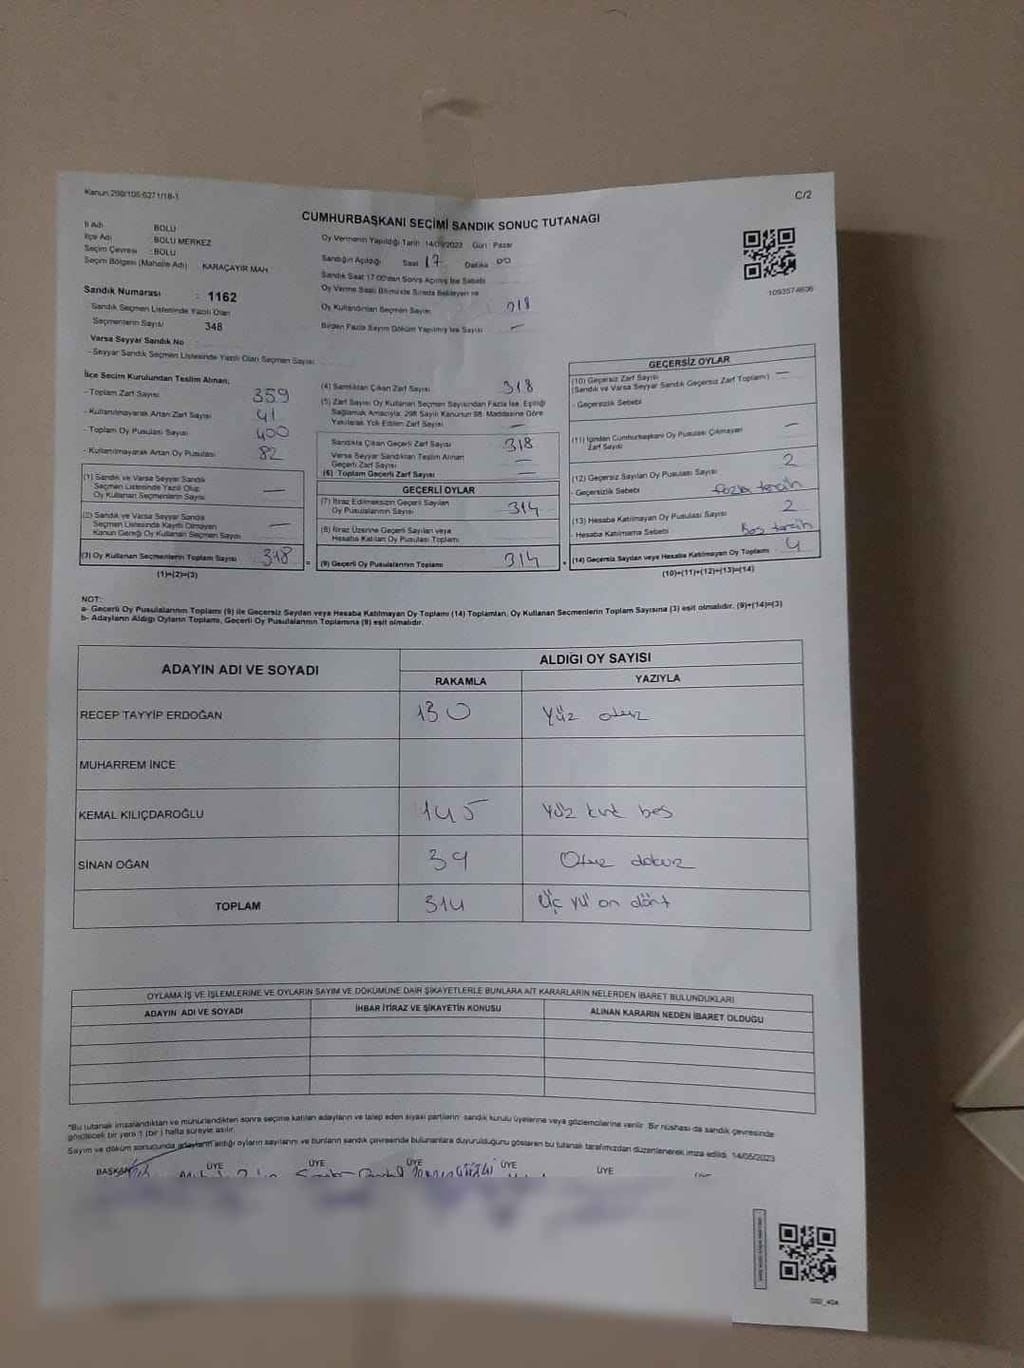 Kanun 298/105-6271/18-1
C/2
CUMHURBAŞKANI SEÇİMİ SANDIK SONUÇ TUTANAĞI
İl Adı BOLU
İlçe Adı : BOLU MERKEZ
Seçim Çevresi : BOLU
Seçim Bölgesi (Mahalle Adı) KARAÇAYIR MAH
Sandık Numarası : 1162
Sandık Seçmen Listesinde Yazılı Olan
Seçmenlerin Sayısı 348
Varsa Seyyar Sandık No
- Seyyar Sandık Seçmen Listesinde Yazılı Olan Seçmen Sayısı
Oy Vermenin Yapıldığı Tarih 14/05/2023 Gün Pazar
Sandığın Açıldığı Saat 17 Dakika 00
Sandık Saat 17:00'dan Sonra Açılmış İse Sebebi
Oy Verme Saati Bitiminde Sırada Bekleyen ve
Oy Kullandırılan Seçmen Sayısı :
Birden Fazla Sayım Döküm Yapılmış İse Sayısı —
1093574606
İlçe Seçim Kurulundan Teslim Alınan;
- Toplam Zarf Sayısı 359
- Kullanılmayarak Artan Zarf Sayısı 41
- Toplam Oy Pusulası Sayısı 400
- Kullanılmayarak Artan Oy Pusulası 82
(1) Sandık ve Varsa Seyyar Sandık
Seçmen Listesinde Yazılı Olup
Oy Kullanan Seçmenlerin Sayısı —
(2) Sandık ve Varsa Seyyar Sandık
Seçmen Listesinde Kayıtlı Olmayan
Kanun Gereği Oy Kullanan Seçmen Sayısı —
(3) Oy Kullanan Seçmenlerin Toplam Sayısı 318
(1)+(2)=(3)
(4) Sandıktan Çıkan Zarf Sayısı 318
(5) Zarf Sayısı Oy Kullanan Seçmen Sayısından Fazla İse, Eşitliği
Sağlamak Amacıyla; 298 Sayılı Kanunun 98. Maddesine Göre
Yakılarak Yok Edilen Zarf Sayısı —
Sandıkta Çıkan Geçerli Zarf Sayısı 318
Varsa Seyyar Sandıktan Teslim Alınan
Geçerli Zarf Sayısı —
(6) Toplam Geçerli Zarf Sayısı —
GEÇERLİ OYLAR
(7) İtiraz Edilmeksizin Geçerli Sayılan
Oy Pusulalarının Sayısı 314
(8) İtiraz Üzerine Geçerli Sayılan veya
Hesaba Katılan Oy Pusulası Toplamı
= (9) Geçerli Oy Pusulalarının Toplamı 314
GEÇERSİZ OYLAR
(10) Geçersiz Zarf Sayısı —
(Sandık ve Varsa Seyyar Sandık Geçersiz Zarf Toplamı)
- Geçersizlik Sebebi
(11) İçinden Cumhurbaşkanı Oy Pusulası Çıkmayan
Zarf Sayısı —
(12) Geçersiz Sayılan Oy Pusulası Sayısı 2
Geçersizlik Sebebi fazla tercih
(13) Hesaba Katılmayan Oy Pusulası Sayısı 2
Hesaba Katılmama Sebebi Boş tercih
+ (14) Geçersiz Sayılan veya Hesaba Katılmayan Oy Toplamı 4
(10)+(11)+(12)+(13)=(14)
NOT:
a- Geçerli Oy Pusulalarının Toplamı (9) ile Geçersiz Sayılan veya Hesaba Katılmayan Oy Toplamı (14) Toplamları, Oy Kullanan Seçmenlerin Toplam Sayısına (3) eşit olmalıdır. (9)+(14)=(3)
b- Adayların Aldığı Oyların Toplamı, Geçerli Oy Pusulalarının Toplamına (9) eşit olmalıdır.
ADAYIN ADI VE SOYADI
ALDIĞI OY SAYISI
RAKAMLA YAZIYLA
RECEP TAYYİP ERDOĞAN 130 Yüz otuz
MUHARREM İNCE
KEMAL KILIÇDAROĞLU 145 Yüz kırk beş
SİNAN OĞAN 39 Otuz dokuz
TOPLAM 314 Üç yü on dört
OYLAMA İŞ VE İŞLEMLERİNE VE OYLARIN SAYIM VE DÖKÜMÜNE DAİR ŞİKAYETLERLE BUNLARA AİT KARARLARIN NELERDEN İBARET BULUNDUKLARI
ADAYIN ADI VE SOYADI İHBAR İTİRAZ VE ŞİKAYETİN KONUSU ALINAN KARARIN NEDEN İBARET OLDUĞU
*Bu tutanak imzalandıktan ve mühürlendikten sonra seçime katılan adayların ve talep eden siyasi partilerin sandık kurulu üyelerine veya gözlemcilerine verilir. Bir nüshası da sandık çevresinde
görülecek bir yere 1 (bir) hafta süreyle asılır.
Sayım ve döküm sonucunda adayların aldığı oyların sayılarını ve bunların sandık çevresinde bulunanlara duyurulduğunu gösteren bu tutanak tarafımızdan düzenlenerek imza edildi. 14/05/2023
BAŞKAN ÜYE ÜYE ÜYE ÜYE ÜYE